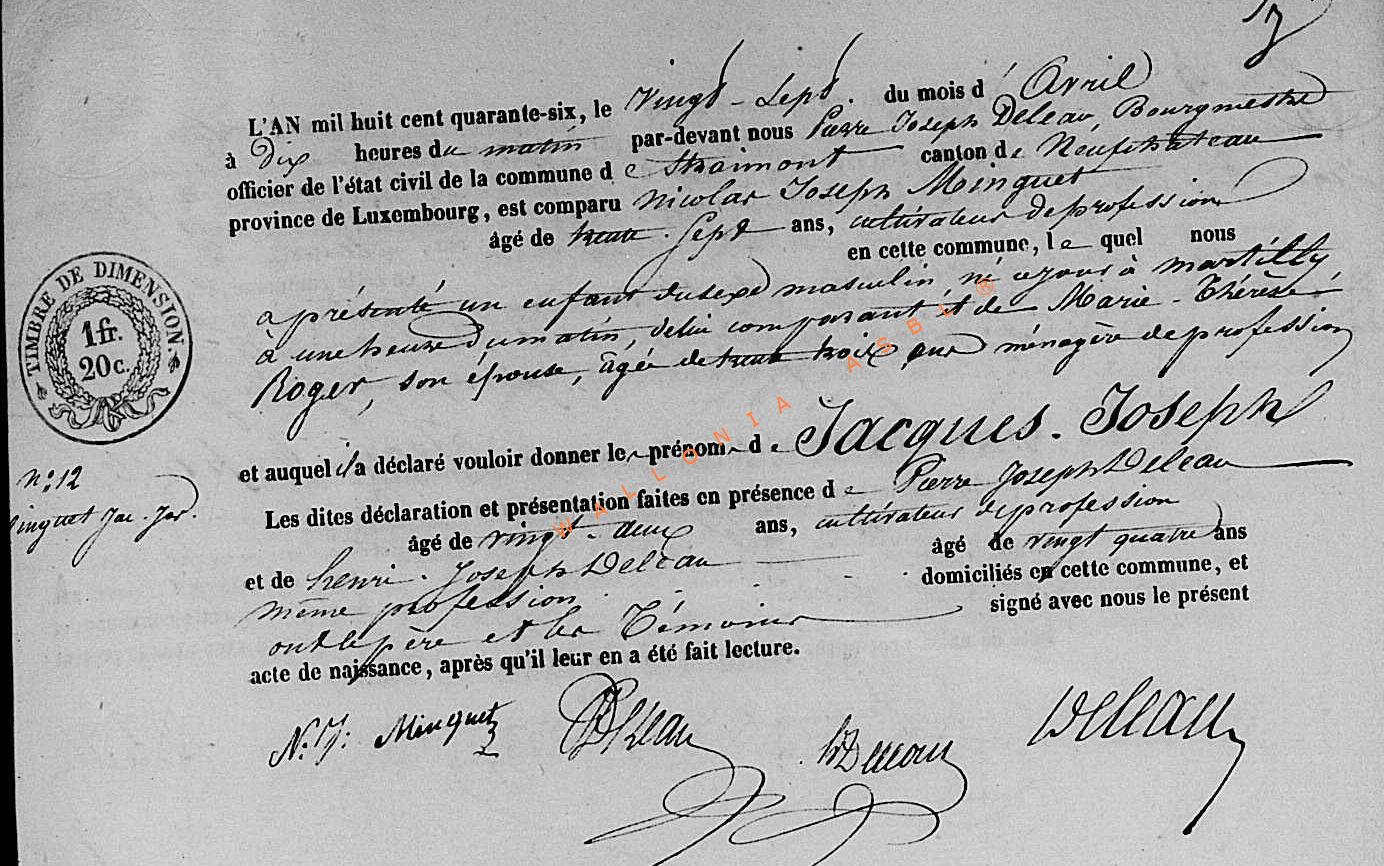 L'AN mil huit cent quarante-six, le Vingt-Sept. du mois d' Avril
à Dix heures du matin par-devant nous Pierre Joseph Deleau, Bourgmestre
officier de l'état civil de la commune de Straimont canton de Neufchateau
province de Luxembourg, est comparu Nicolas Joseph Minguet
âgé de trente-sept ans, cultivateur de profession
en cette commune, le quel nous
a présenté un enfant du sexe masculin, né à martilly,
à une heure du matin, de lui comparant et de Marie-Thérèse
Roger, son épouse, âgée de trente trois ans ménagère de profession
et auquel il a déclaré vouloir donner le prénom de Jacques-Joseph
Les dites déclaration et présentation faites en présence de Pierre Joseph Deleau
âgé de vingt-deux ans, cultivateur de profession
et de henri-Joseph Deleau âgé de vingt quatre ans
même profession. domiciliés en cette commune, et
ont le père et les Témoins signé avec nous le présent
acte de naissance, après qu'il leur en a été fait lecture.
N. J: Minguet Deleau Deleau Deleau
TIMBRE DE DIMENSION
1 fr.
20 c.
n°: 12
Minguet Jac. Jos.
WALLONIA ASBL ®